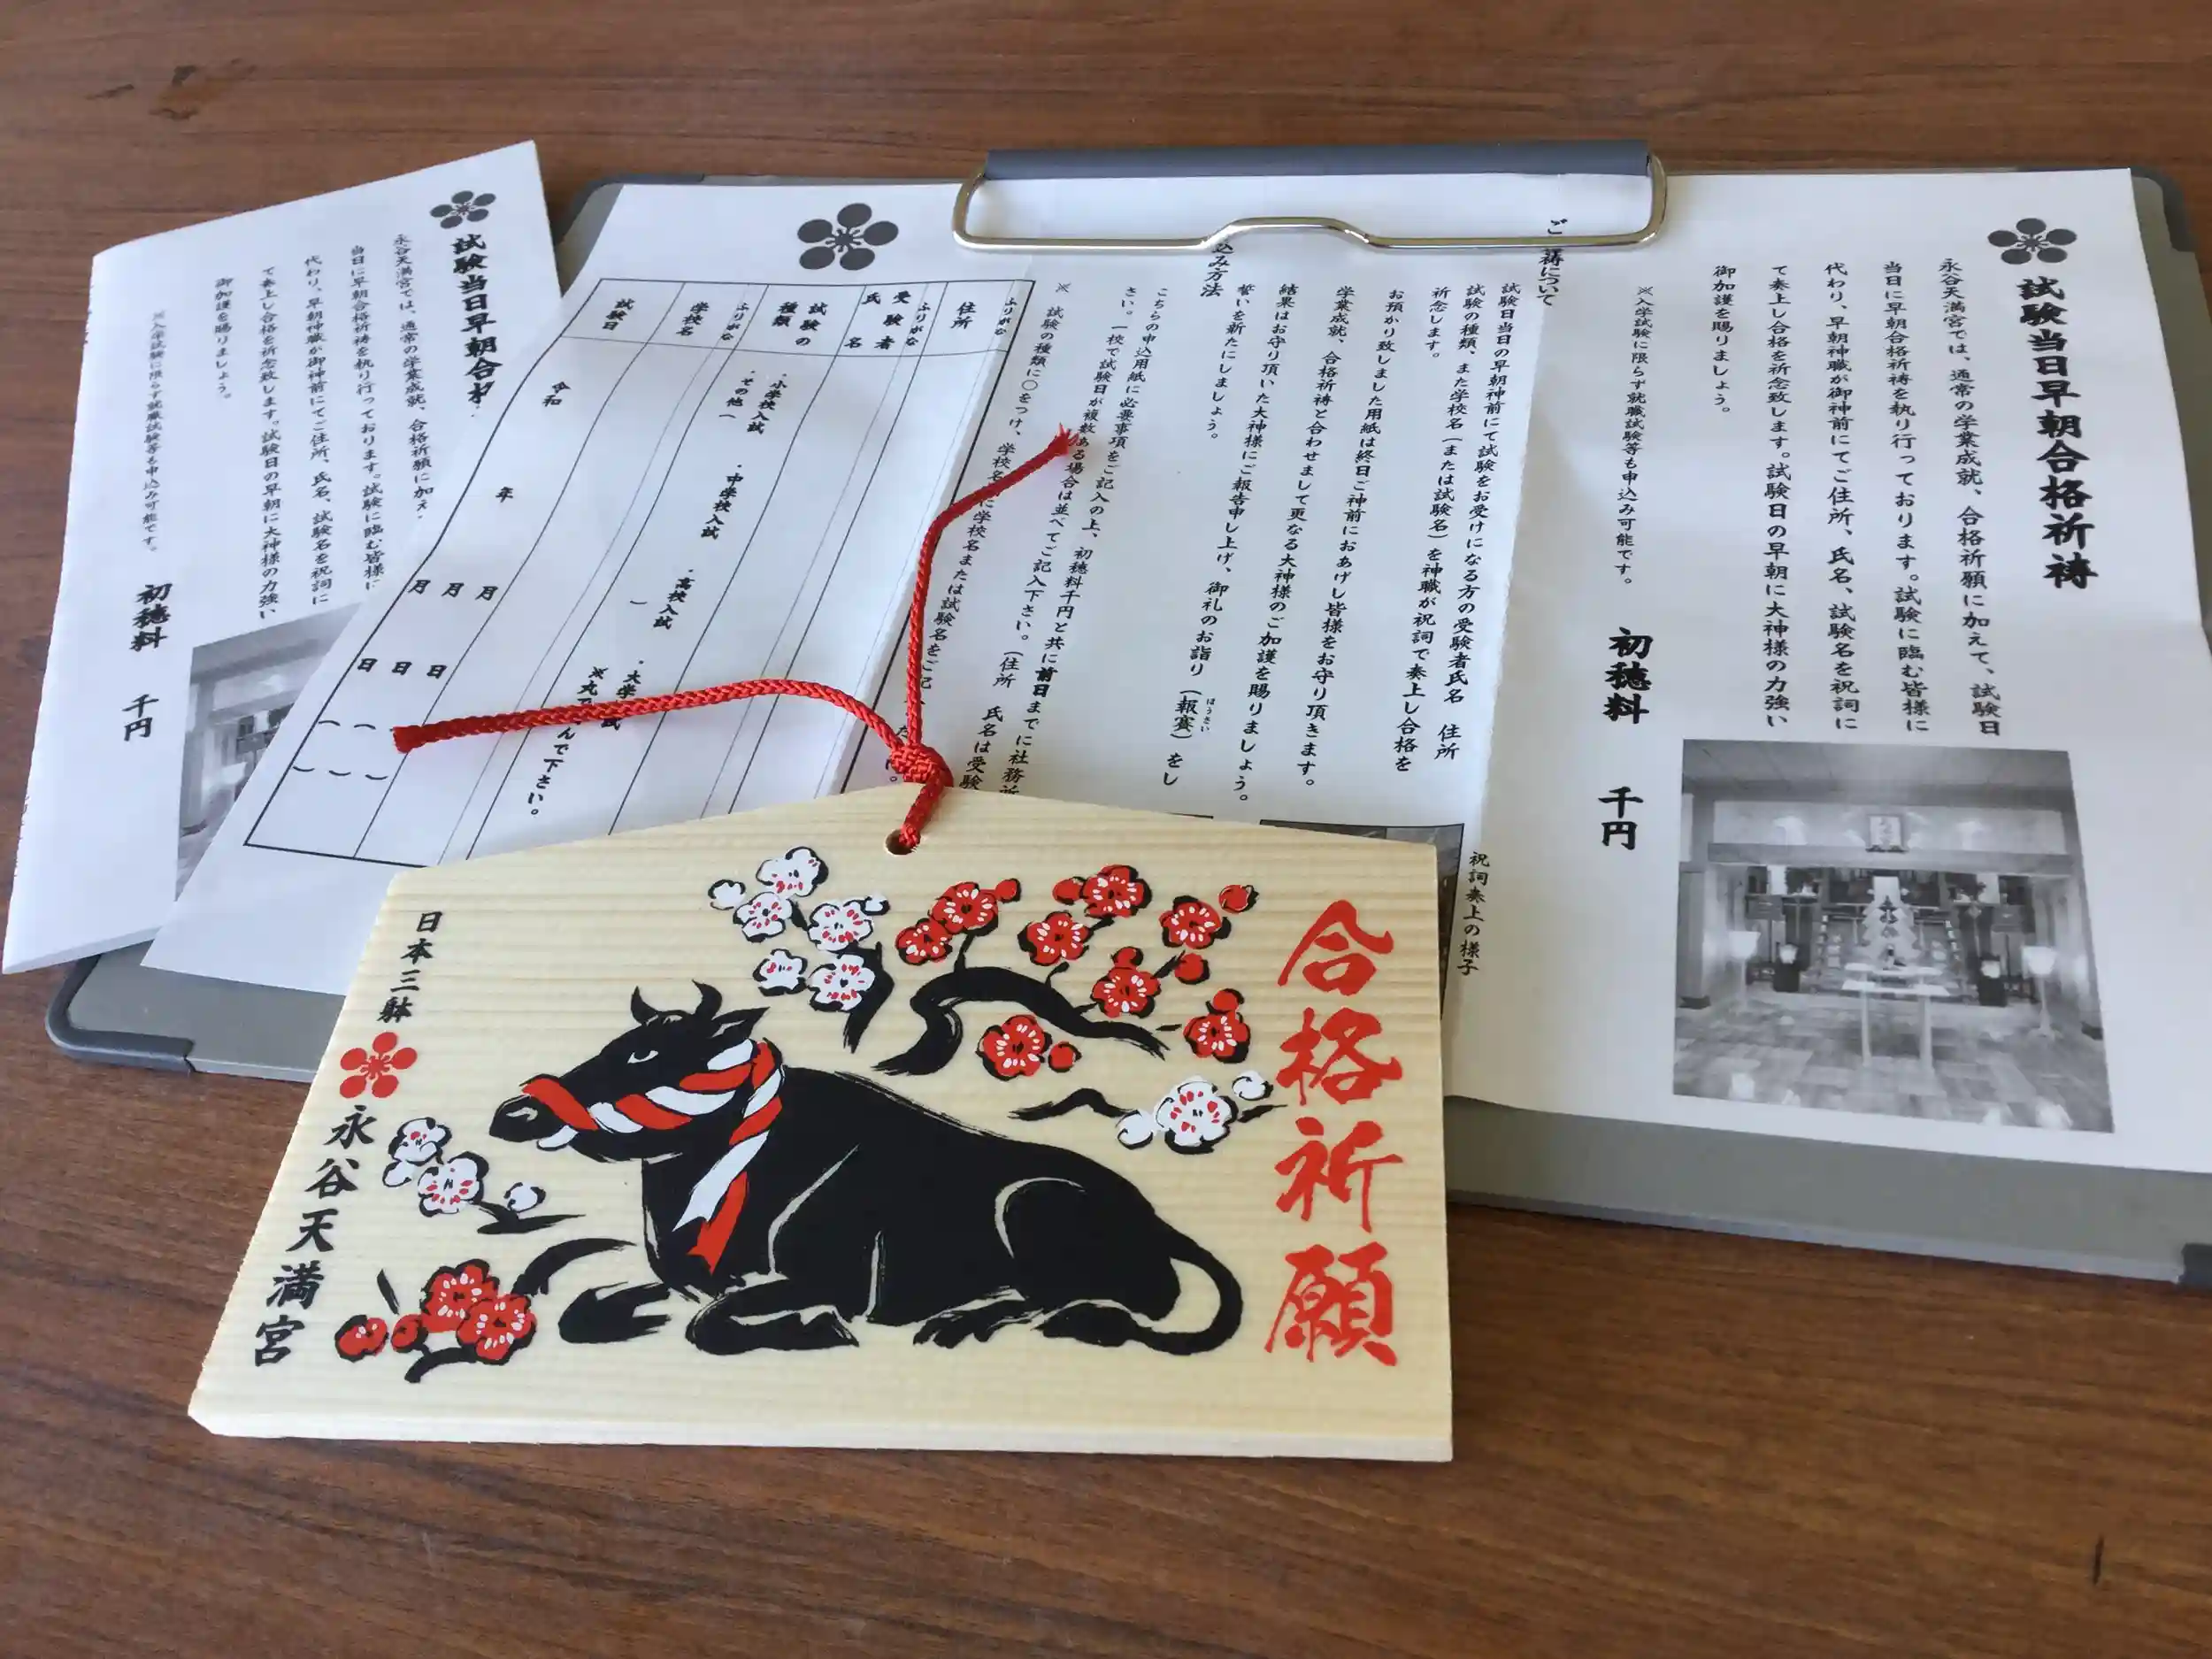 試験当日早朝合格祈祷
永谷天満宮では、通常の学業成就、合格祈願に加えて、試験日
当日に早朝合格祈祷を執り行っております。試験に臨む皆様に
代わり、早朝神職が御神前にてご住所、氏名、試験名を祝詞に
て奏上し合格を祈念致します。試験日の早朝に大神様の力強い
御加護を賜りましょう。
※入学試験に限らず就職試験等も申込み可能です。
初穂料 千円
ご 祷について
試験日当日の早朝神前にて試験をお受けになる方の受験者氏名 住所
試験の種類、また学校名（または試験名）を神職が祝詞で奏上し合格を
祈念します。
お預かり致しました用紙は終日ご神前におあげし皆様をお守り頂きます。
学業成就、合格祈祷と合わせまして更なる大神様のご加護を賜りましょう。
結果はお守り頂いた大神様にご報告申し上げ、御礼のお詣り（報賽）をし
ほうさい
誓いを新たにしましょう。
祝詞奏上の様子
込み方法
こちらの申込用紙に必要事項をご記入の上、初穂料千円と共に前日までに社務所
さい。一校で試験日が複数ある場合は並べてご記入下さい。（住所 氏名は受験
※ 試験の種類に○をつけ、学校名 に学校名または試験名をご記
ふりがな
住所
ふりがな
受験者
氏名
試験の
種類
・小学校入試 ・中学校入試 ・高校入試 ・大学 試
・その他（ ）
※丸で んで下さい。
ふりがな
学校名
試験日
令和 年 月 日（ ）
月 日（ ）
月 日（ ）
試験当日早朝合格
永谷天満宮では、通常の学業成就、合格祈願に加え
当日に早朝合格祈祷を執り行っております。試験に臨む皆様に
代わり、早朝神職が御神前にてご住所、氏名、試験名を祝詞に
て奏上し合格を祈念致します。試験日の早朝に大神様の力強い
御加護を賜りましょう。
※入学試験に限らず就職試験等も申込み可能です。
初穂料 千円
合格祈願
日本三躰
永谷天満宮